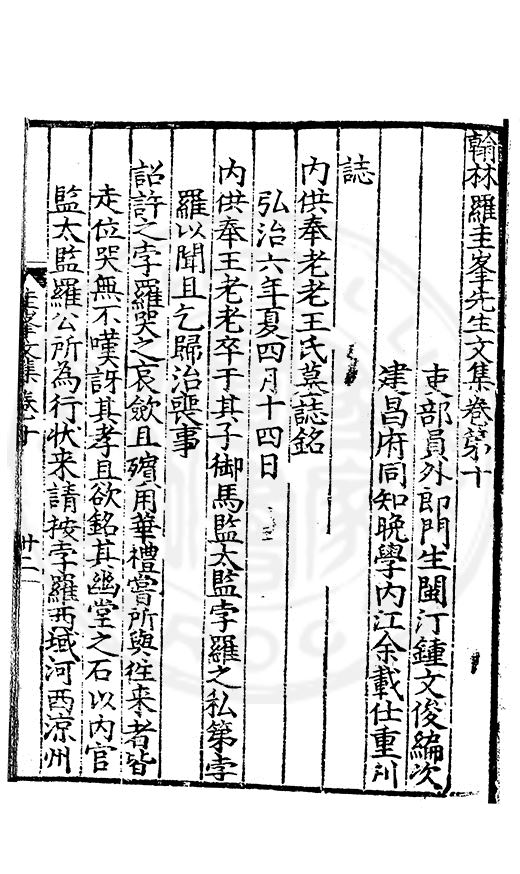 翰林羅圭峯先生文集卷第十
吏部員外郎門生閩汀鍾文俊編次
建昌府同知晚學内江余載仕重刋
誌
内供奉老老王氏墓誌銘
弘治六年夏四月十四日
内供奉王老老卒于其子御馬監太監孛羅之私第孛
羅以聞且乞歸治喪事
詔許之孛羅哭之哀歛且殯用華禮嘗所與往来者皆
走位哭無不嘆訝其孝且欲銘其幽堂之石以内官
監太監羅公所為行状来請按孛羅西域河西凉州
圭峯文集卷十
廿二